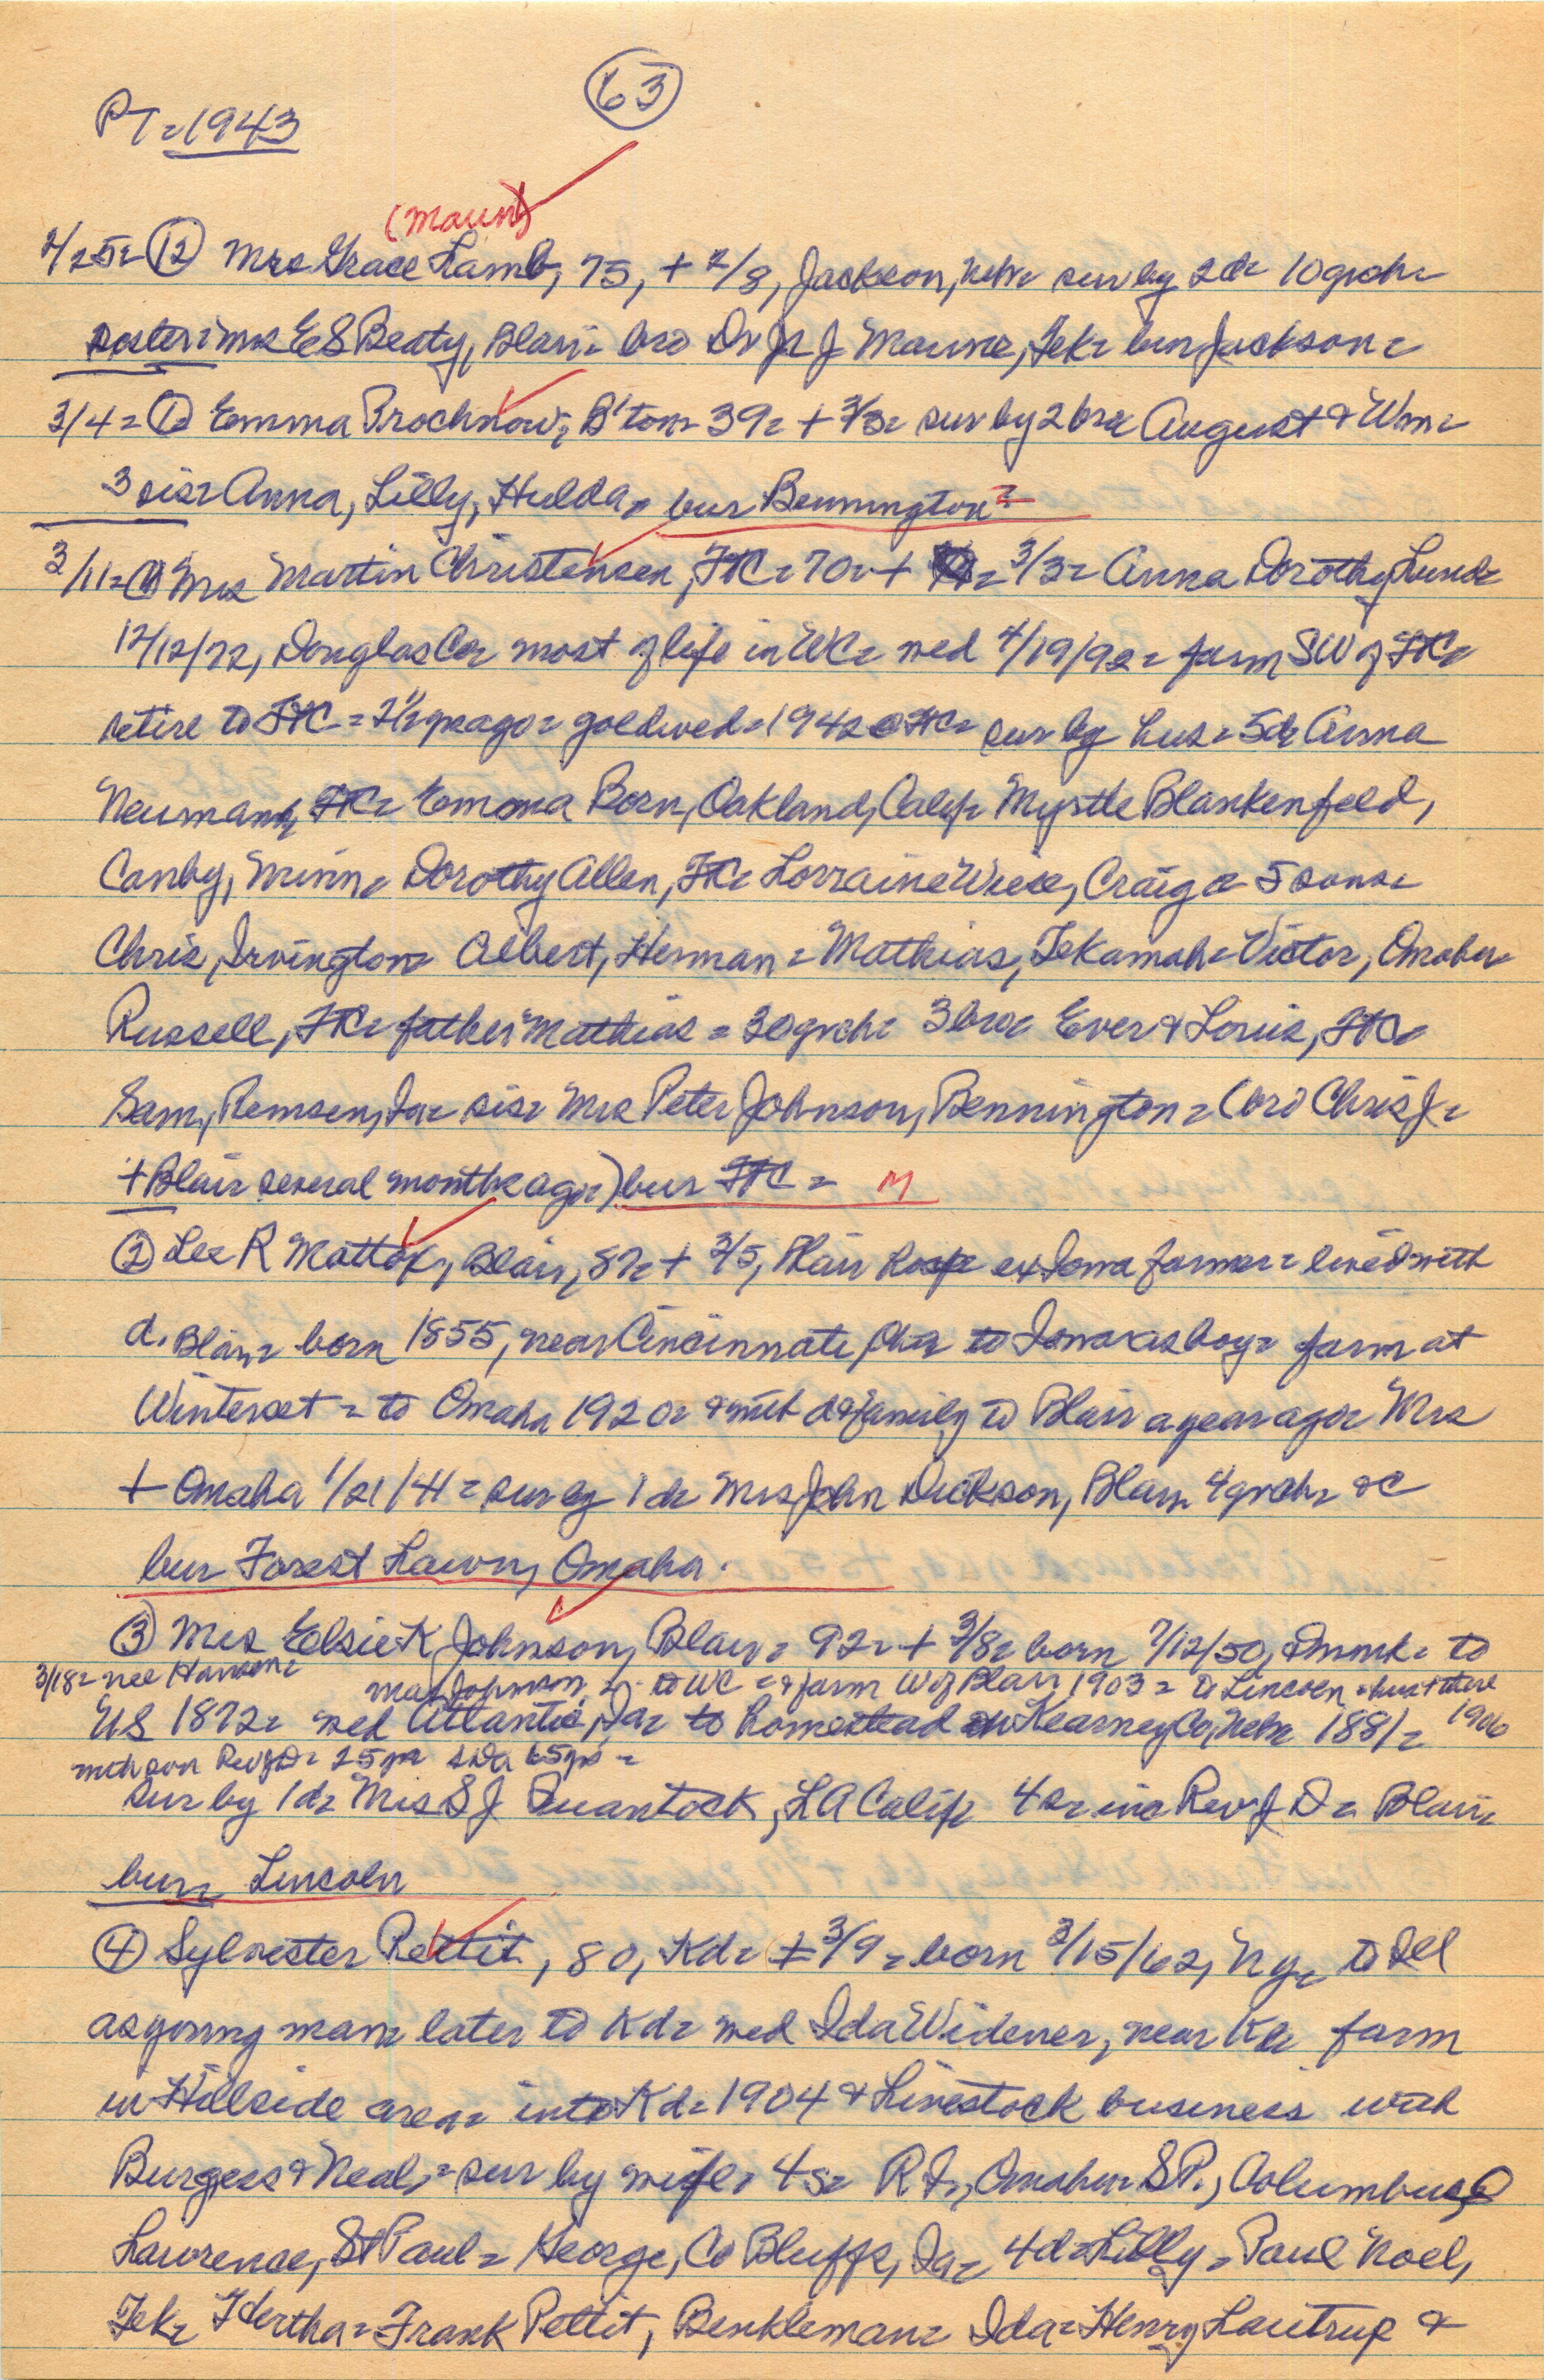 63
PT = 1943
(Maun)
2/25 = 12 Mrs Grace Lamb, 75, + 2/8, Jackson, Neb = sur by 2d = 10 grch =
sister = Mrs E S Beaty, Blair = bro Dr J J Maune, Tek = bur Jackson =
3/4 = 1 Emma Prochnow, B'ton = 39 = + 3/3 = sur by 2 bro August & Wm =
3 sis = Anna, Lilly, Hulda = bur Bennington =
3/11 = 1 Mrs Martin Christensen, FtC = 70 = + 3/3 = Anna Dorothy Lund =
12/12/72, Douglas Co = most of life in WC = wed 4/19/92 = farm SW of FtC =
retire to FtC = yrs ago = gold wed = 1942 @ FtC = sur by hus = 5d Anna
Neumann, FtC = Emma Born, Oakland, Calif = Myrtle Blankenfeld,
Canby, Minn = Dorothy Allen, FtC = Lorraine Wiese, Craig & 5 sons =
Chris, Irvington = Albert, Herman = Mathias, Tekamah = Victor, Omaha =
Russell, FtC = father Mathias = 30 grch = 3 bro = Ever & Louis, FtC =
Sam, Remsen, Ia = sis = Mrs Peter Johnson, Bennington = (bro Chris J =
+ Blair several months ago =) bur FtC = M
2 Lee R Mattox, Blair, 87 = + 3/5, Blair hosp = ex Iowa farmer = lived with
d. Blair = born 1855, near Cincinnati, Ohio = to Iowa as boy = farm at
Winterset = to Omaha 1920 = & with d & family to Blair a year ago = Mrs
+ Omaha 1/21/41 = sur by 1 d = Mrs John Dickson, Blair 4 grch = &c
bur Forest Lawn, Omaha.
3 Mrs Elsie K Johnson, Blair = 92 = + 3/8 = born 7/12/50, Denmk = to
3/18 = nee Hansen = Johnson = to WC = & farm W of Blair 1903 = to Lincoln = hus + there
US 1872 = wed Atlantic, Ia = to homestead in Kearney Co, Nebr 1881 = 1906
with son Rev J D = 25 yrs 65 yrs =
sur by 1 d = Mrs S J Quantock, LA Calif = 4 s = inc Rev J D = Blair =
bur = Lincoln
4 Sylvester Pettit, 80, Kd = + 3/9 = born 3/15/62, NY = to Ill
as young man = later to Kd = wed Ida Widener, near Kd = farm
in Hillside area = into Kd = 1904 & Livestock business with
Burgess & Neal = sur by wife = 4s = R I., Omaha = S P., Columbus =
Lawrence, St Paul = George, Co Bluffs, Ia = 4d = Lilly = Paul Noel,
Tek = Hertha = Frank Pettit, Benkleman = Ida = Henry Lautrup &